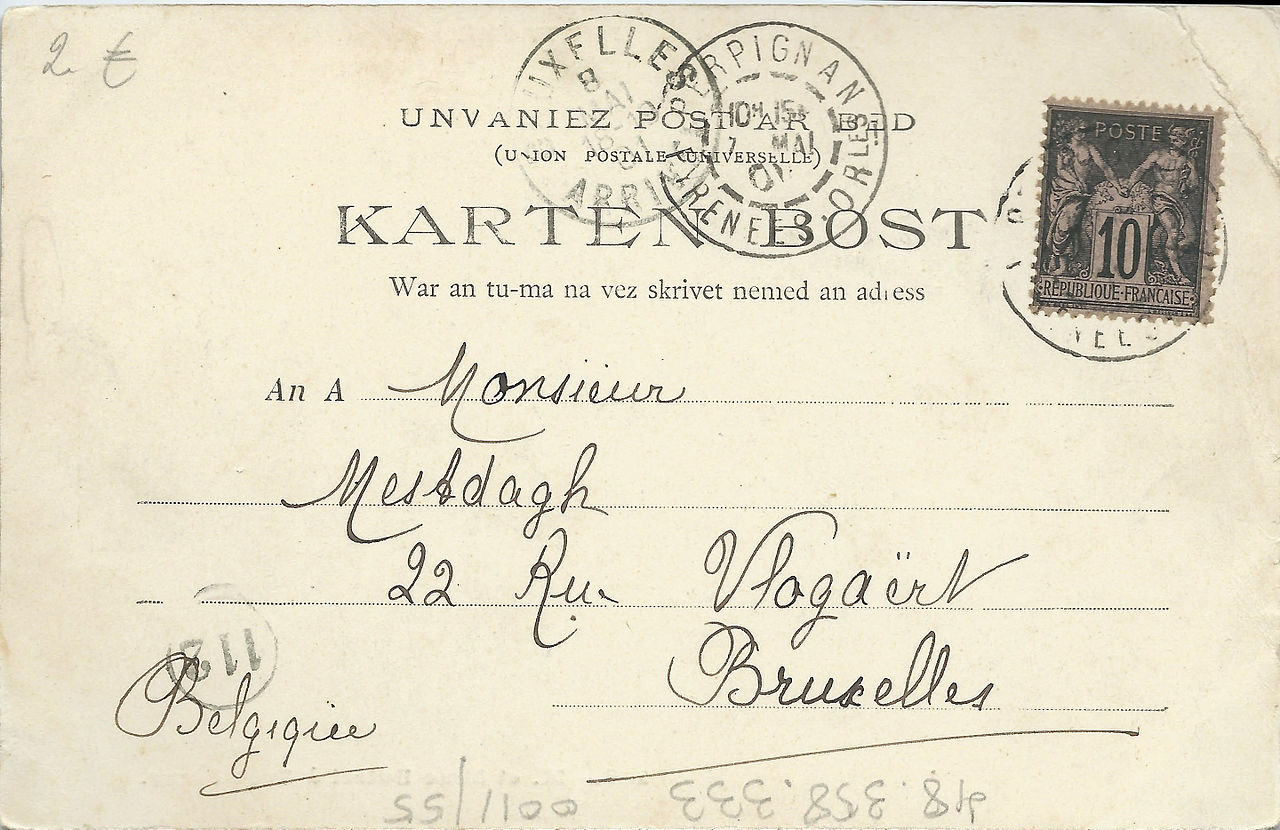 2. €
UXELLES
8
MAI
ARRI
PERPIGNAN
10H 15
7 MAI
01
PYRENEES-ORLES
UNVANIEZ POST AR BED
(UNION POSTALE UNIVERSELLE)
KARTEN BOST
War an tu-ma na vez skrivet nemed an adress
POSTE
10
REPUBLIQUE-FRANCAISE
An A Monsieur
Mestdagh
22 Rue Vlogaërt
Bruxelles
Belgique
48.358.333
0011/55